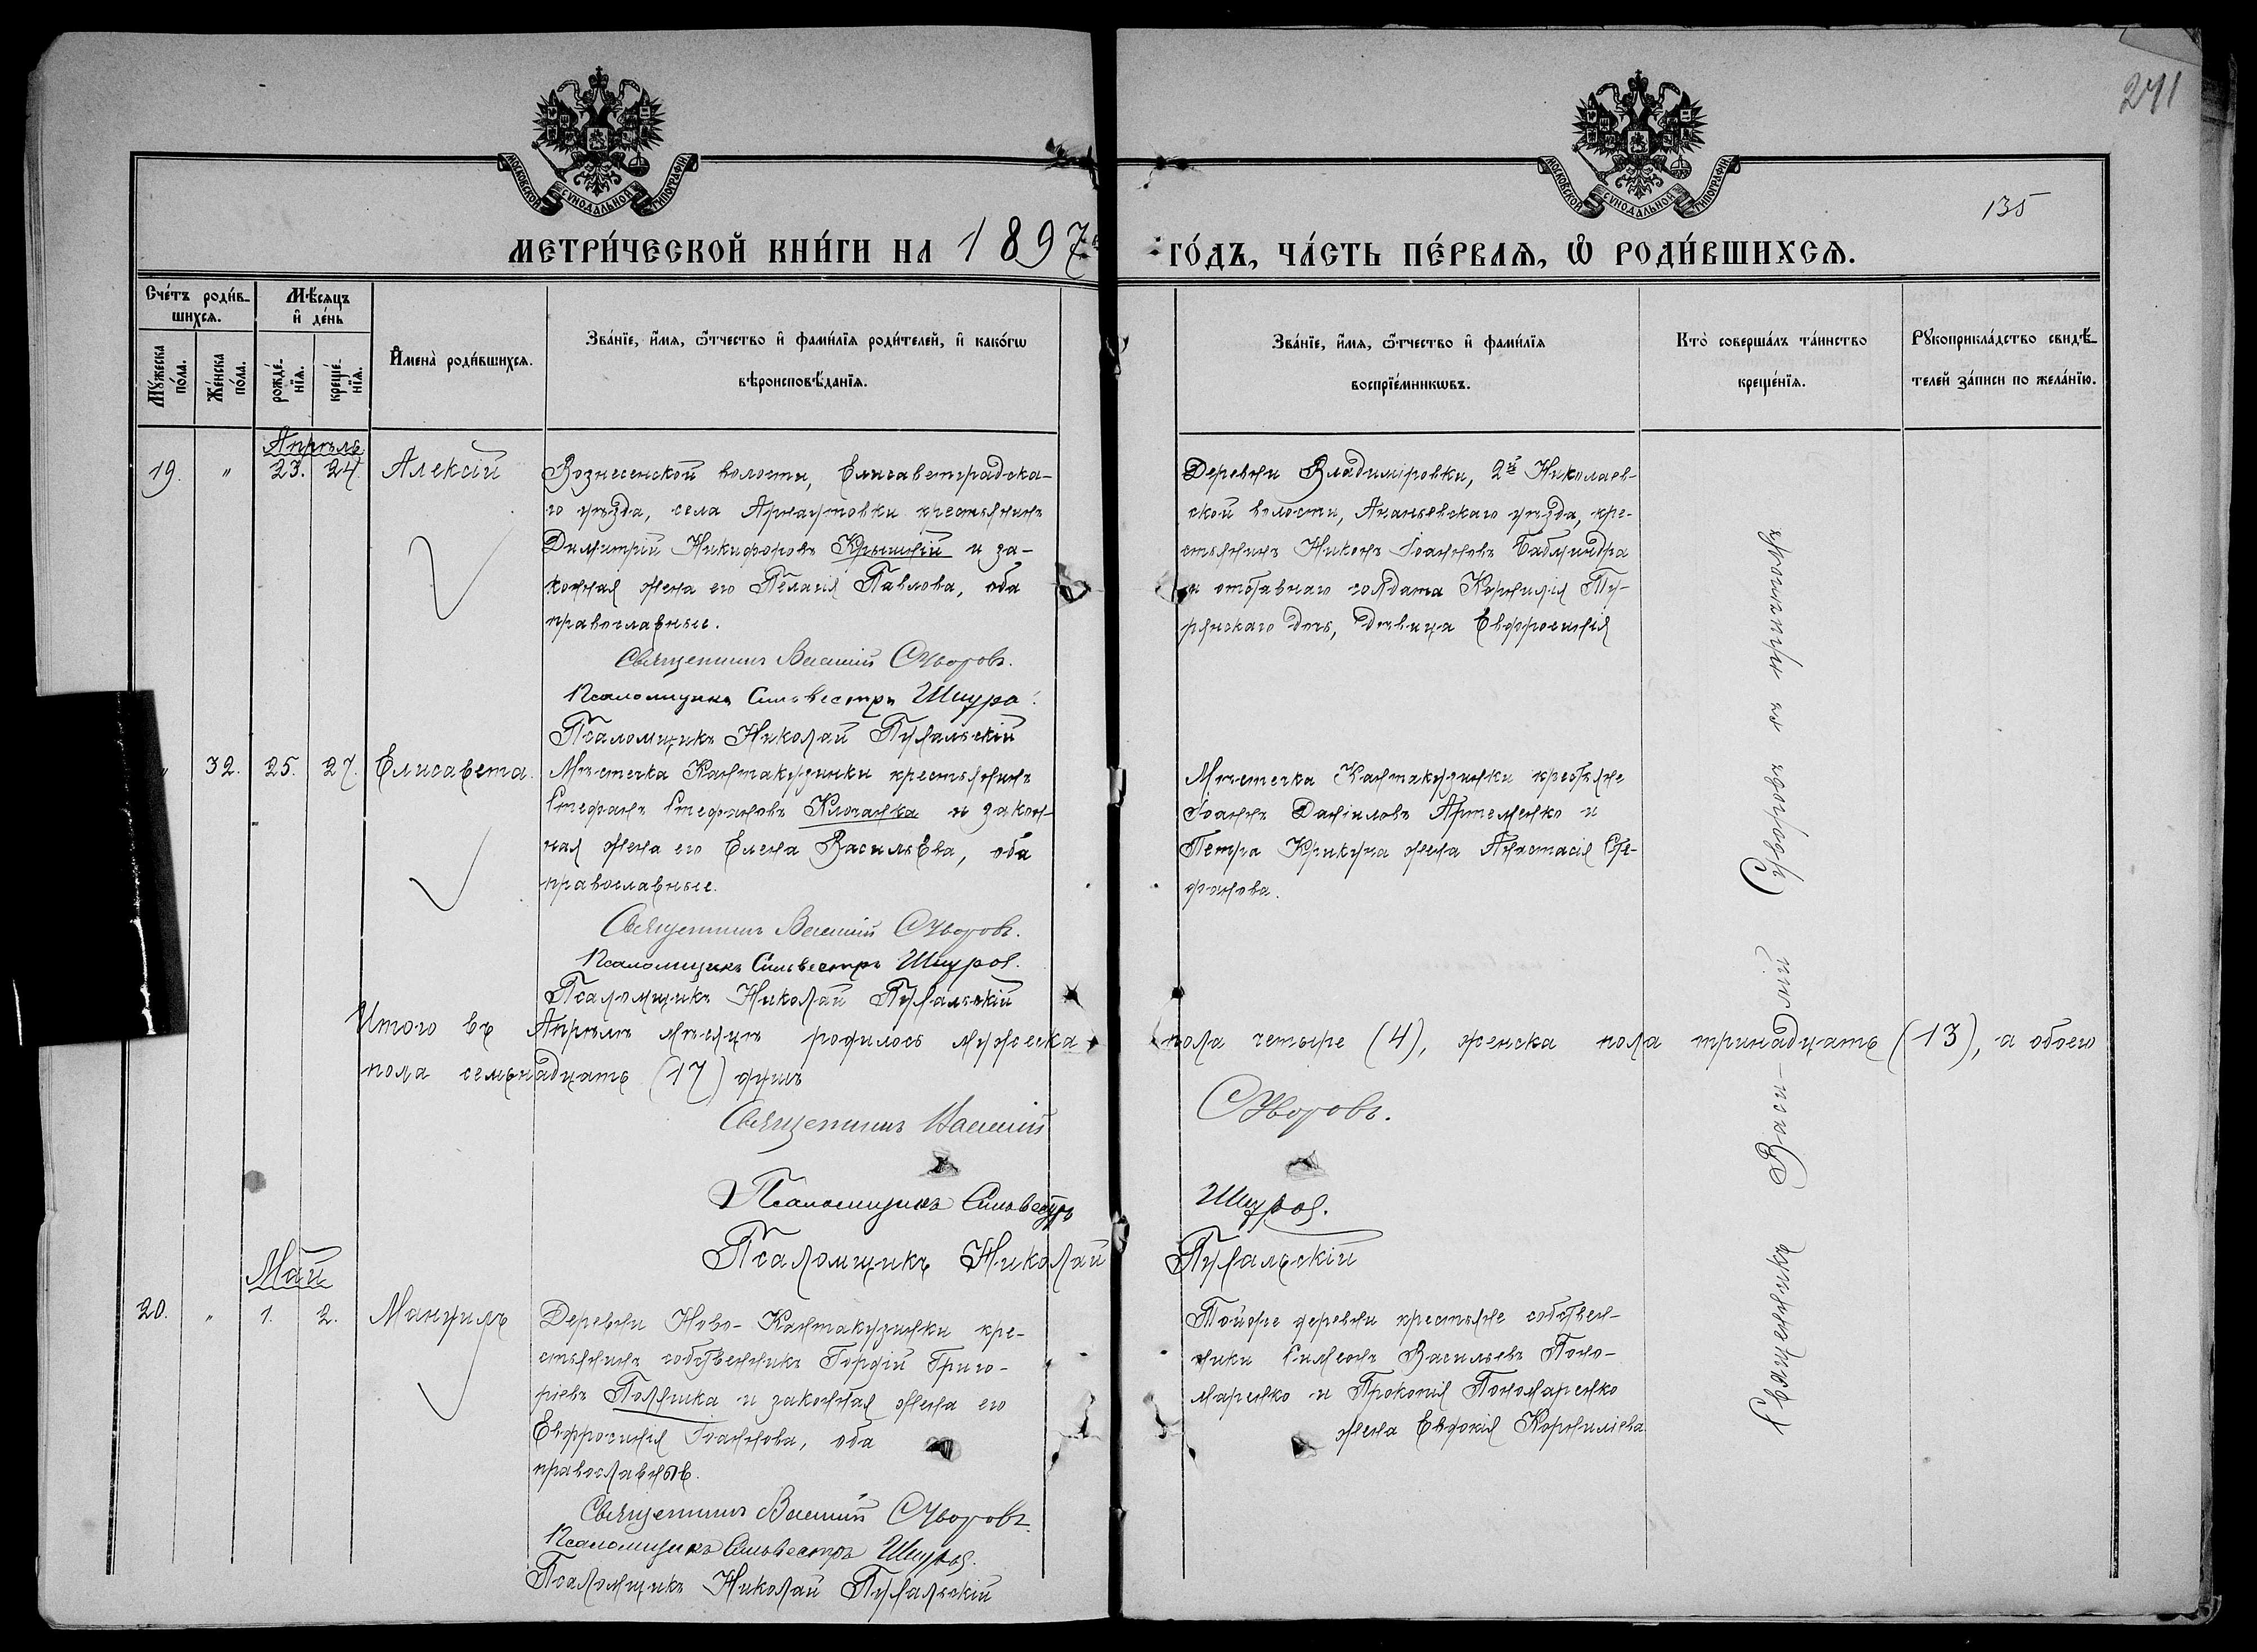 241
135
МОСКОВСКОЙ СѴНОДАЛЬНОЙ ТИПОГРАФІИ
МОСКОВСКОЙ СѴНОДАЛЬНОЙ ТИПОГРАФІИ
МЕТРИ́ЧЕСКОЙ КНИ́ГИ НА 1897 ГО́ДЪ, ЧА́СТЬ ПЕ́РВАѦ, Ѡ҆ РОДИ́ВШИХСѦ.
Сче́тъ роди́в-
шихсѧ.
Мꙋ́жеска по́ла.
Же́нска по́ла.
Мѣ́сѧцъ
и҆ де́нь
рожде́-
нїѧ.
креще́-
нїѧ.
И҆мена̀ роди́вшихсѧ.
Зва́нїе, и҆́мѧ, ѻ҆́тчество и҆ фамѝлїѧ роди́телей, и҆ како́гѡ
вѣроисповѣ́данїѧ.
Зва́нїе, и҆́мѧ, ѻ҆́тчество и҆ фами́лїѧ
воспрїе́мникѡвъ.
Кто̀ соверша́лъ та́инство
креще́нїѧ.
Рꙋкоприкла́дство свидѣ́-
телей за́писи по жела́нїю.
Апрѣль
19. " 23. 24. Алексій
Вознесенской волости, Елисаветградска-
го уѣзда, села Арнаутовки крестьянинъ
Димитрій Никифоровъ и за-
конная жена его Пелагія Павлова, оба
православные.
Священникъ Василій Суворовъ.
Псаломщикъ Сильвестръ
Псаломщикъ Николай
Деревни Владиміровки, 2й Николаев-
ской волости, Ананьевскаго уѣзда, кре-
стьянинъ Никонъ Іоанновъ
и отставнаго солдата Корнилія
дочь, дѣвица Евфросинія
" 32. 25. 27. Елисавета.
Мѣстечка Кантакузинки крестьянинъ
Стефанъ Стефановъ и закон-
ная жена его Елена Васильева, оба
православные.
Священникъ Василій Суворовъ.
Псаломщикъ Сильвестръ
Псаломщикъ Николай
Мѣстечка Кантакузинки крестьяне
Іоаннъ Даніиловъ Артеменко и
Петра Крикуна жена Анастасія Сте-
фанова.
Итого въ Апрѣлѣ мѣсяцѣ родилось мужеска пола четыре (4), женска пола тринадцать (13), а обоего
пола семьнадцать (17) душъ
Священникъ Василій Суворовъ.
Псаломщикъ Сильвестръ
Псаломщикъ Николай
Май
20. " 1. 2. Мануилъ
Деревни Ново-Кантакузинки кре-
стьянинъ собственникъ Гордій Григо-
ріевъ и законная жена его
Евфросинія Іоаннова, оба
православные.
Священникъ Василій Суворовъ.
Псаломщикъ Сильвестръ
Псаломщикъ Николай
Той же деревни крестьяне собствен-
ники Симеонъ Васильевъ Поно-
маренко и Прокопія Пономаренко
жена Евдокія Корниліева
Священникъ Васи-
лій Суворовъ съ причтомъ